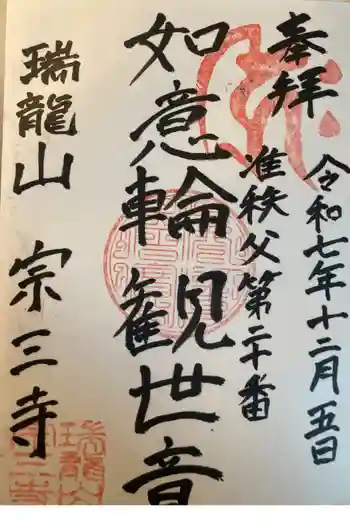 奉拝
令和七年十二月五日
准秩父第二十番
如意輪
観世音
瑞龍山 宗三寺